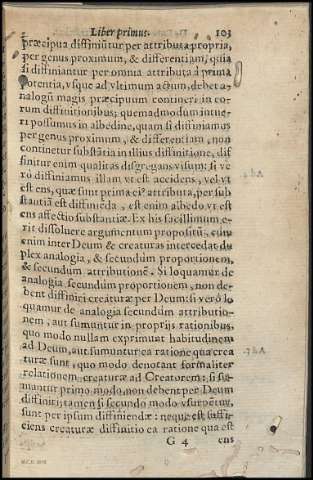 Liber primus. 103
præcipua diffiniũtur per attributa propria,
per genus proximum, & differentiam, quia
si diffiniantur per omnia attributa à prima
potentia, vsque ad vltimum actum, debet a-
nalogũ magis præcipuum contineri in eo-
rum diffinitionibus; quemadmodum intue-
ri possumus in albedine, quam si diffiniamus
per genus proximum, & differentiam, non
continetur substãtia in illius diffinitione, dif
finitur enim qualitas disgregans visum: si ve-
rò diffiniamus illam vt est accidens, vel vt
est ens, quæ sunt prima ei⁹ attributa, per sub
stantiã est diffiniẽda, est enim albedo vt est
ens affectio substantiæ. Ex his facillimum e-
rit dissoluere argumentum propositũ, cum
enim inter Deum & creaturas intercedat du
plex analogia, & secundũm proportionem,
& secundum attributionẽ. Si loquamur de
analogia secundum proportionem, non de-
bent diffiniri creaturæ per Deum: si verò lo
quamur de analogia secundum attributio-
nem, aut sumuntur in proprijs rationibus,
quo modo nullam exprimunt habitudinem
ad Deum, aut sumuntur ea ratione qua crea
turæ sunt, quo modo denotant formaliter
relationem creaturæ ad Creatorem: si su-
mantur primo modo, non debent per Deum
diffiniri; tamen si secundo modo vsurpẽtur,
sunt per ipsum diffiniendæ: neque est suffi-
ciens creaturæ diffinitio ea ratione qua est
G 4 ens